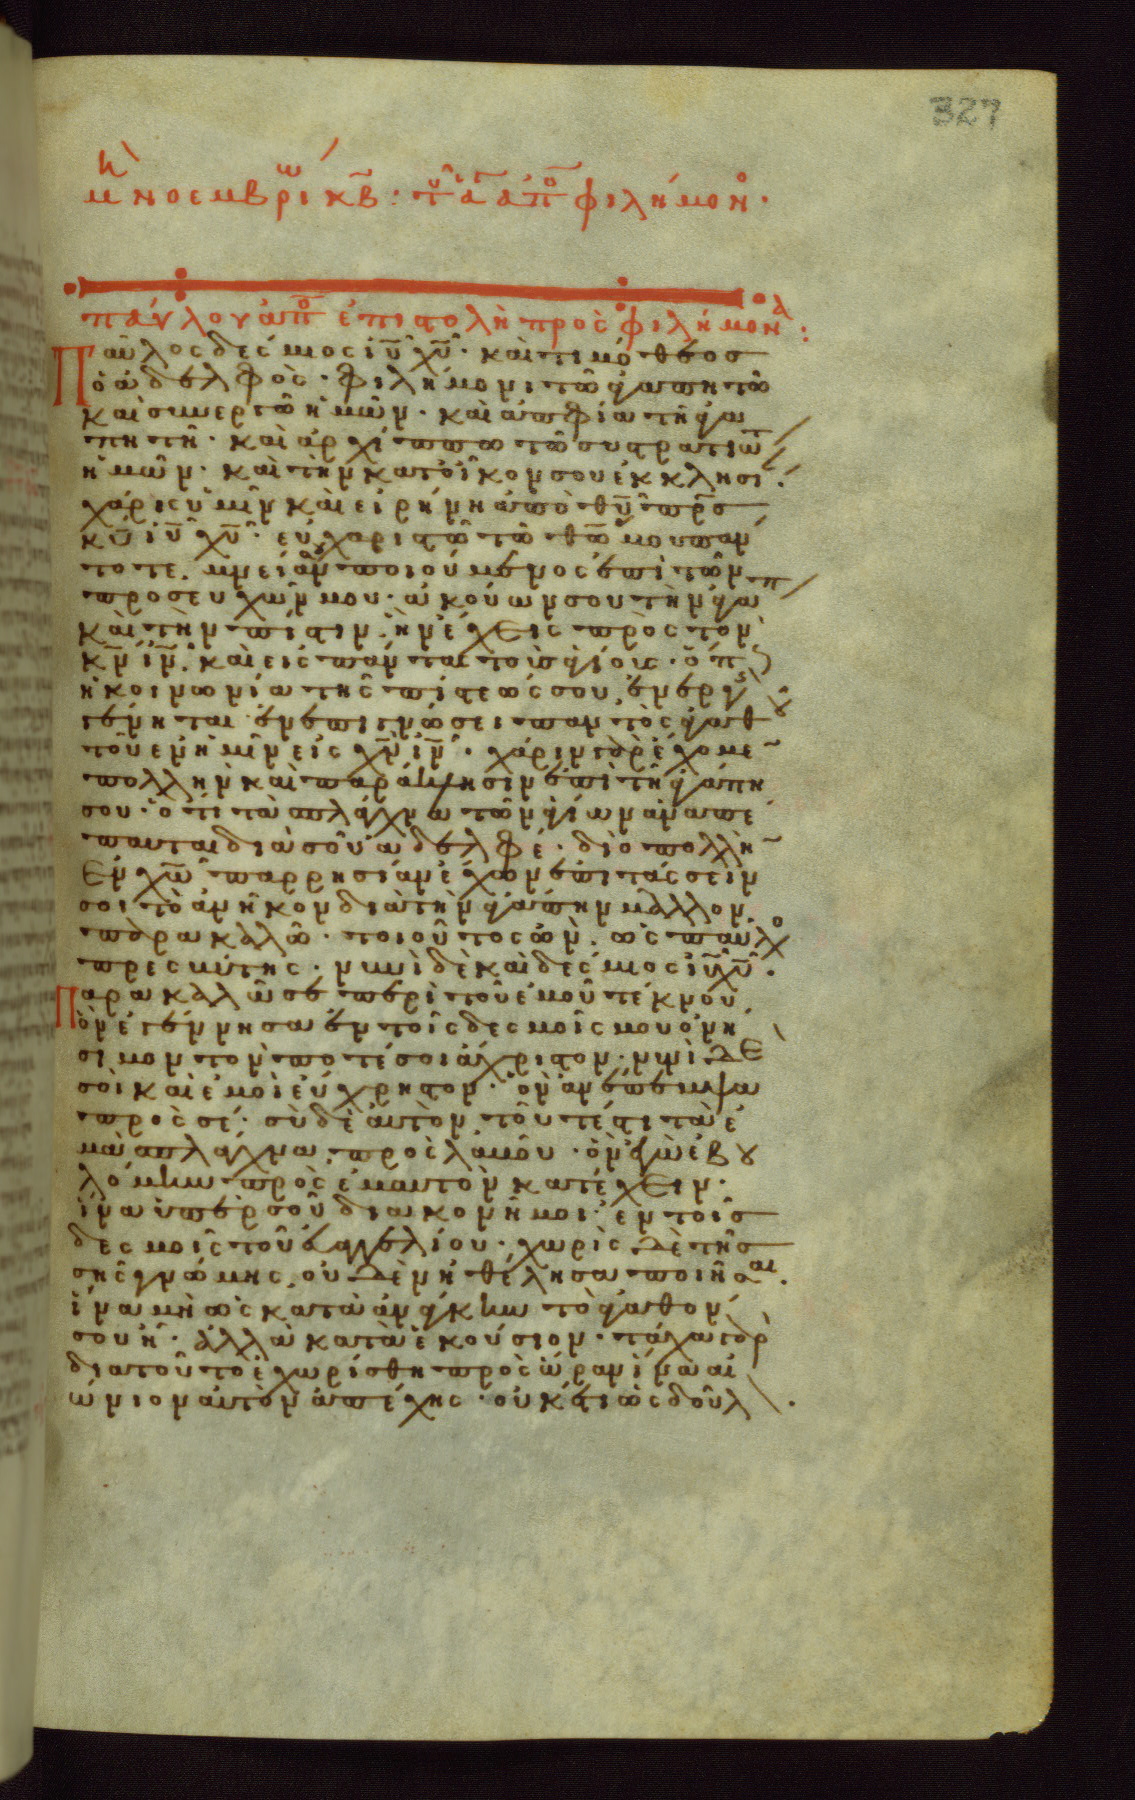 327
μη νοεμβρίω κβ: τοῦ ἁγ ἀπο φιλήμονο.
παύλου ἀπο ἐπιστολὴ πρὸς φιλήμονα:
Παῦλος δέσμιος ιυ χυ· καὶ τιμόθεος
ὁ ἀδελφὸς· φιλήμονι τῶ ἀγαπητῶ
καὶ συνεργῶ ἡμῶν· καὶ ἀπφία τῆ ἀγα
πητῆ· καὶ ἀρχίππω τῶ συστρατιώτ
ἡμῶν· καὶ τὴν κατοῖκον σου ἐκκλησί·
χάρις ὑμῖν καὶ εἰρήνη ἀπὸ θυ πρς
κυ ιυ χυ· εὐχαριστῶ τῶ θω μου πάν
τοτε. μνείαν σου ποιούμενος ἐπὶ τῶν
προσευχῶν μου· ἀκούων σου τὴν ἀγάπ
καὶ τὴν πίστιν. ἣν ἔχεις πρὸς τὸν
κν ιν· καὶ εἰς πάντας τοὺς ἁγίους· ὅπ
ἡ κοινωνία τῆς πίστεώς σου ἐνεργὴς
γένηται ἐν ἐπιγνώσει παντὸς ἀγαθου
τοῦ ἐν ἡμῖν εἰς χν ιν· χάριν γὰρ ἔχομε
πολλὴν καὶ παράκλησιν ἐπὶ τῆ ἀγάπη
σου· ὅτι τὰ σπλάγχνα τῶν ἁγίων ἀναπέ
παυται διὰ σοῦ ἀδελφέ· διὸ πολλὴ
ἐν χω παρρησίαν ἔχων ἐπιτάσσειν
σοι τὸ ἀνῆκον διὰ τὴν ἀγάπην μᾶλλον
παρακαλῶ· τοιοῦτος ὢν. ὡς παυλο
πρεσβύτης· νυνὶ δὲ καὶ δέσμιος ιυ χυ·
Παρακαλῶ σε περὶ τοῦ ἐμοῦ τέκνου.
ὃν ἐγέννησα ἐν τοῖς δεσμοῖς μου ὀνή
σιμον τόν ποτέ σοι ἄχριστον· νυνὶ δὲ
σοὶ καὶ ἐμοὶ εὔχρηστον· ὃν ἀνέπεμψα
πρὸς σέ· σὺ δὲ αὐτὸν τοῦτέστι τὰ ἐ
μὰ σπλάγχνα. προσλάβου· ὃν ἐγὼ ἐβου
λόμην πρὸς ἐμαυτὸν κατέχειν·
ἵνα ὑπὲρ σοῦ διακονῆ μοι ἐν τοῖς
δεσμοῖς τοῦ εὐαγγελίου· χωρὶς δὲ τῆς
σῆς γνώμης οὐδὲν ἠθέλησα ποιῆσαι.
ἵνα μὴ ὡς κατὰ ἀνάγκην τὸ ἀγαθόν
σου ῆ· ἀλλὰ κατὰ ἑκούσιον· τάχα γὰρ
διὰ τοῦτο ἐχωρίσθη πρὸς ὥραν ἵνα αἰ
ώνιον αὐτὸν ἀπέχης· οὐκέτι ὡς δοῦλ.